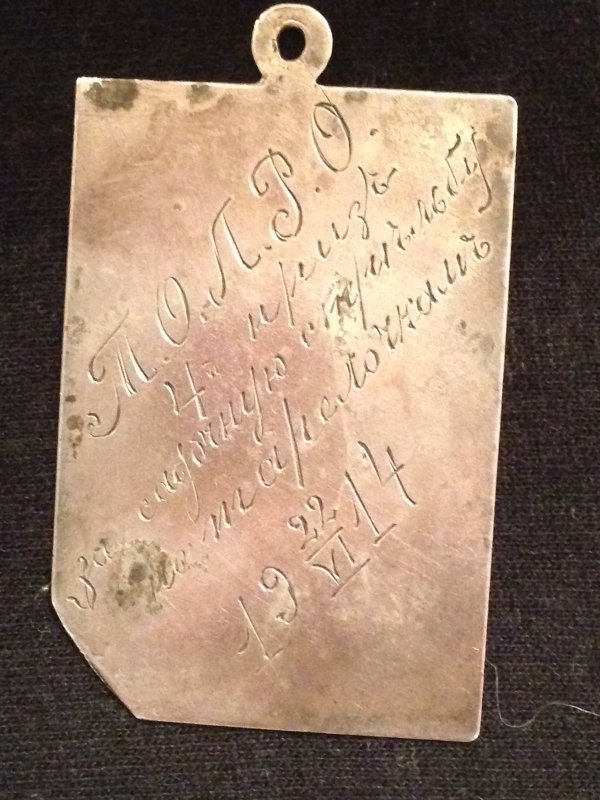 Т.О.Л.Р.О.
4й призъ
за садочную стрѣльбу
по тарелочкамъ
19 22/VI 14